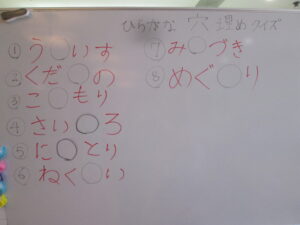 ひらがな 穴埋めクイズ
① う○いす
② くだ○の
③ こ○もり
④ さい○ろ
⑤ に○とり
⑥ ねく○い
⑦ み○づき
⑧ めぐ○り